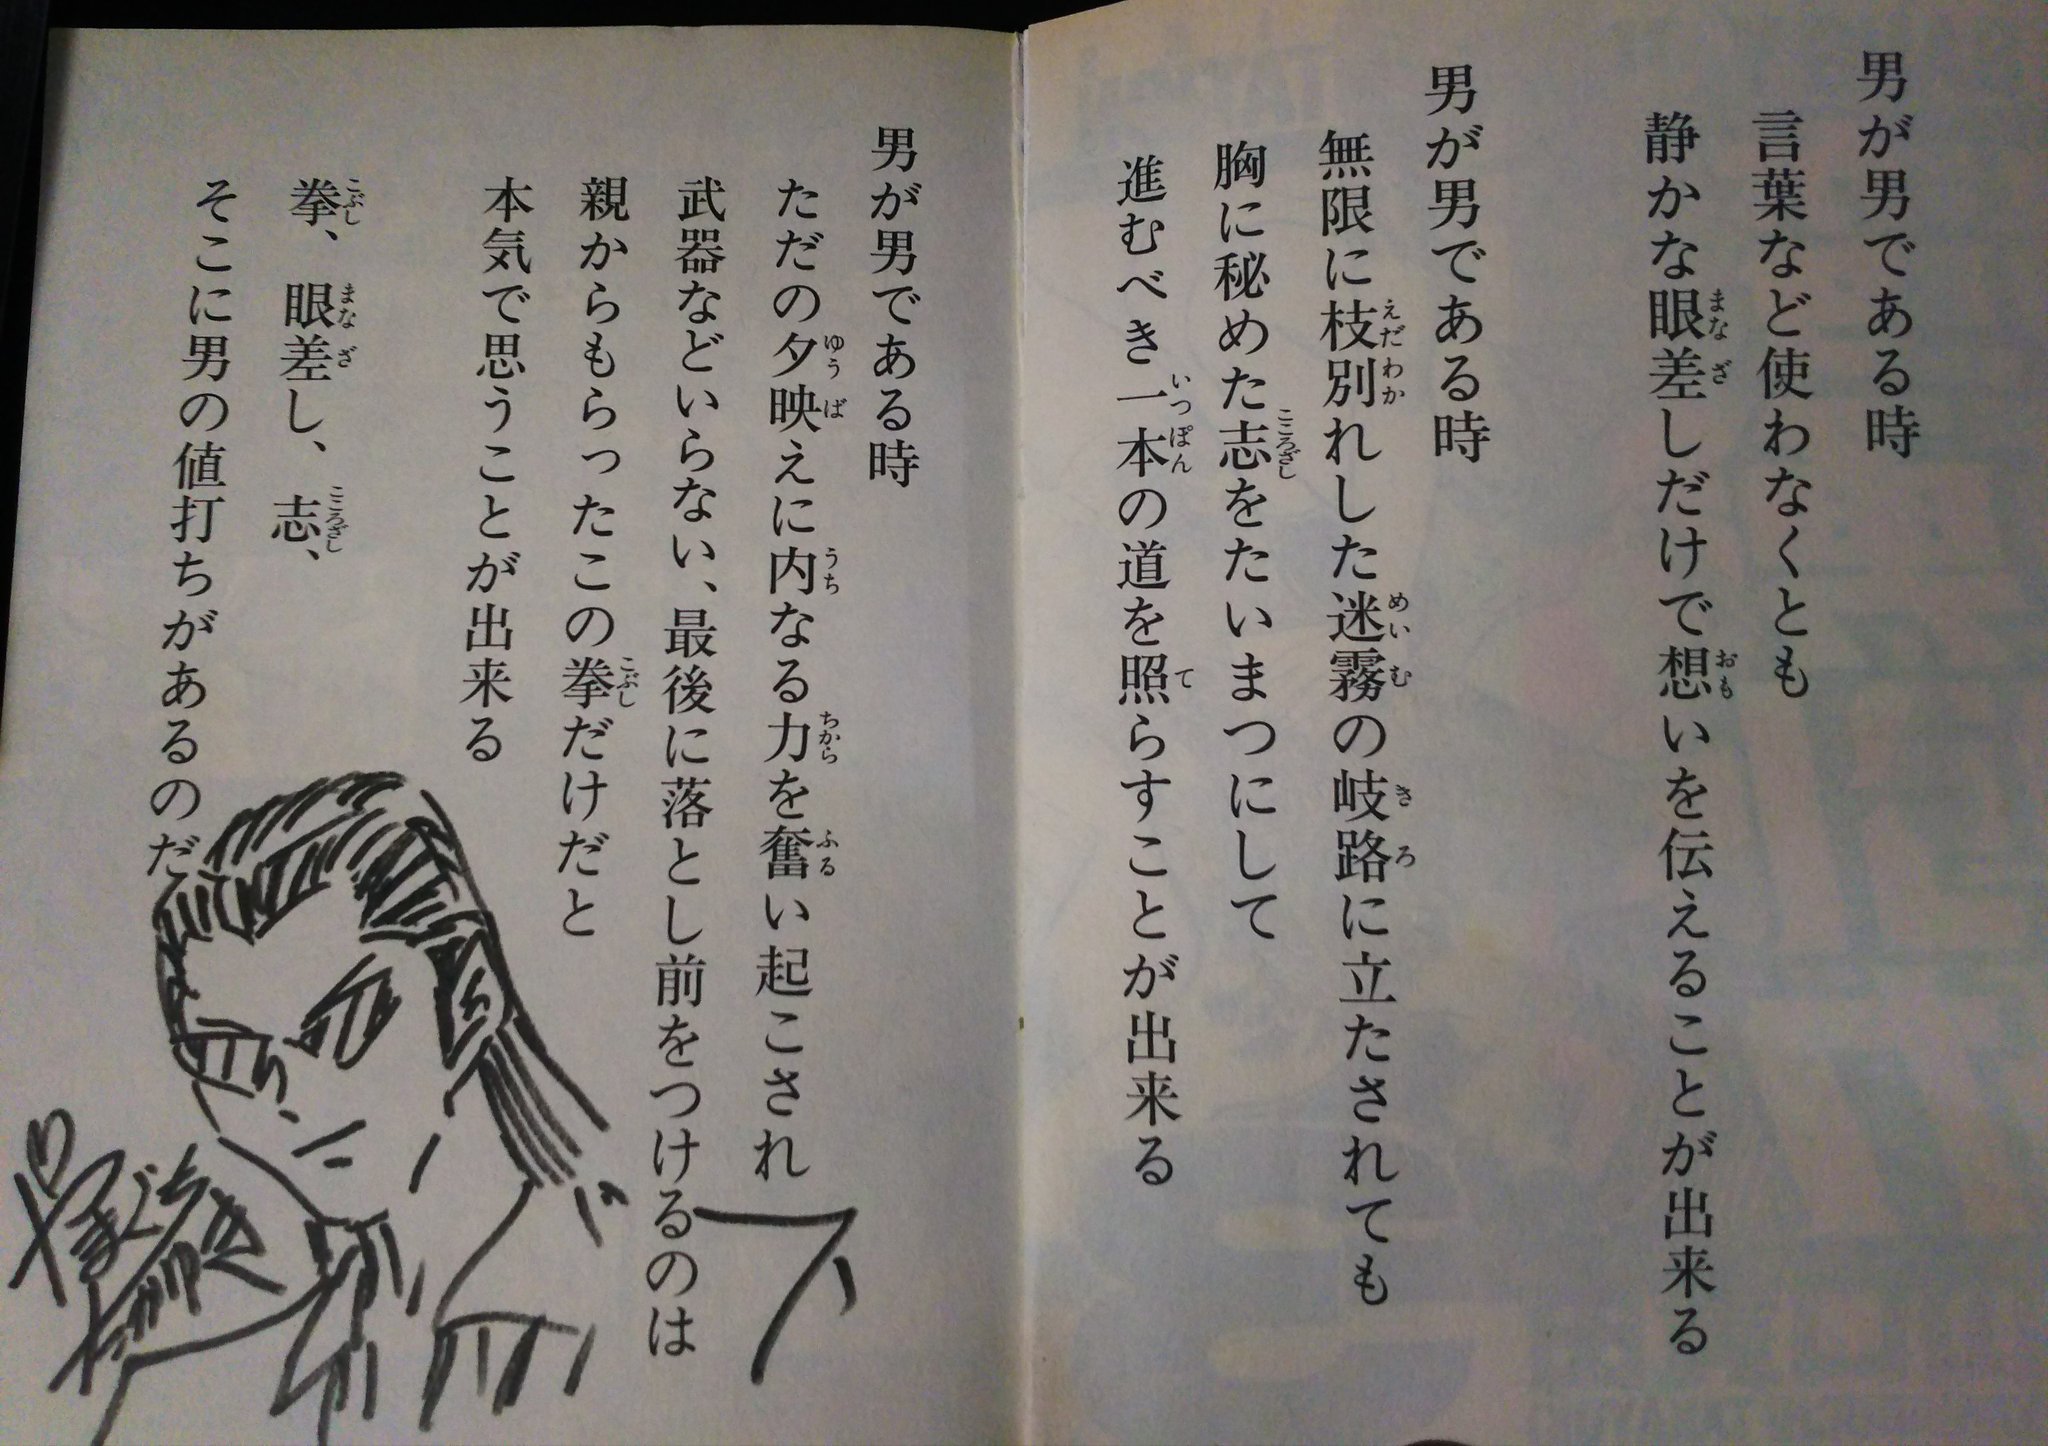 男が男である時
言葉など使わなくとも
静かな眼差しだけで想いを伝えることが出来る
男が男である時
無限に枝別れした迷霧の岐路に立たされても
胸に秘めた志をたいまつにして
進むべき一本の道を照らすことが出来る
男が男である時
ただの夕映えに内なる力を奮い起こされ
武器などいらない、最後に落とし前をつけるのは
親からもらったこの拳だけだと
本気で思うことが出来る
拳、眼差し、志、
そこに男の値打ちがあるのだ